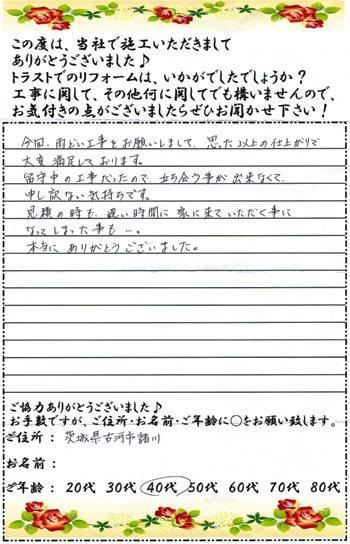 この度は、当社で施工いただきまして
ありがとうございました♪
トラストでのリフォームは、いかがでしたでしょうか？
工事に関して、その他何に関してでも構いませんので、
お気付きの点がございましたらぜひお聞かせ下さい！
今回、雨どい工事をお願いしまして、思った以上の仕上がりで
大変満足しております。
留守中の工事だったので、立ち会う事が出来なくて、
申し訳ない気持ちです。
見積の時も、遅い時間に家に来ていただく事に
なってしまった事も…。
本当にありがとうございました。
ご協力ありがとうございました♪
お手数ですが、ご住所・お名前・ご年齢に○をお願い致します。
ご住所： 茨城県古河市諸川
お名前：
ご年齢： 20代 30代 40代 50代 60代 70代 80代